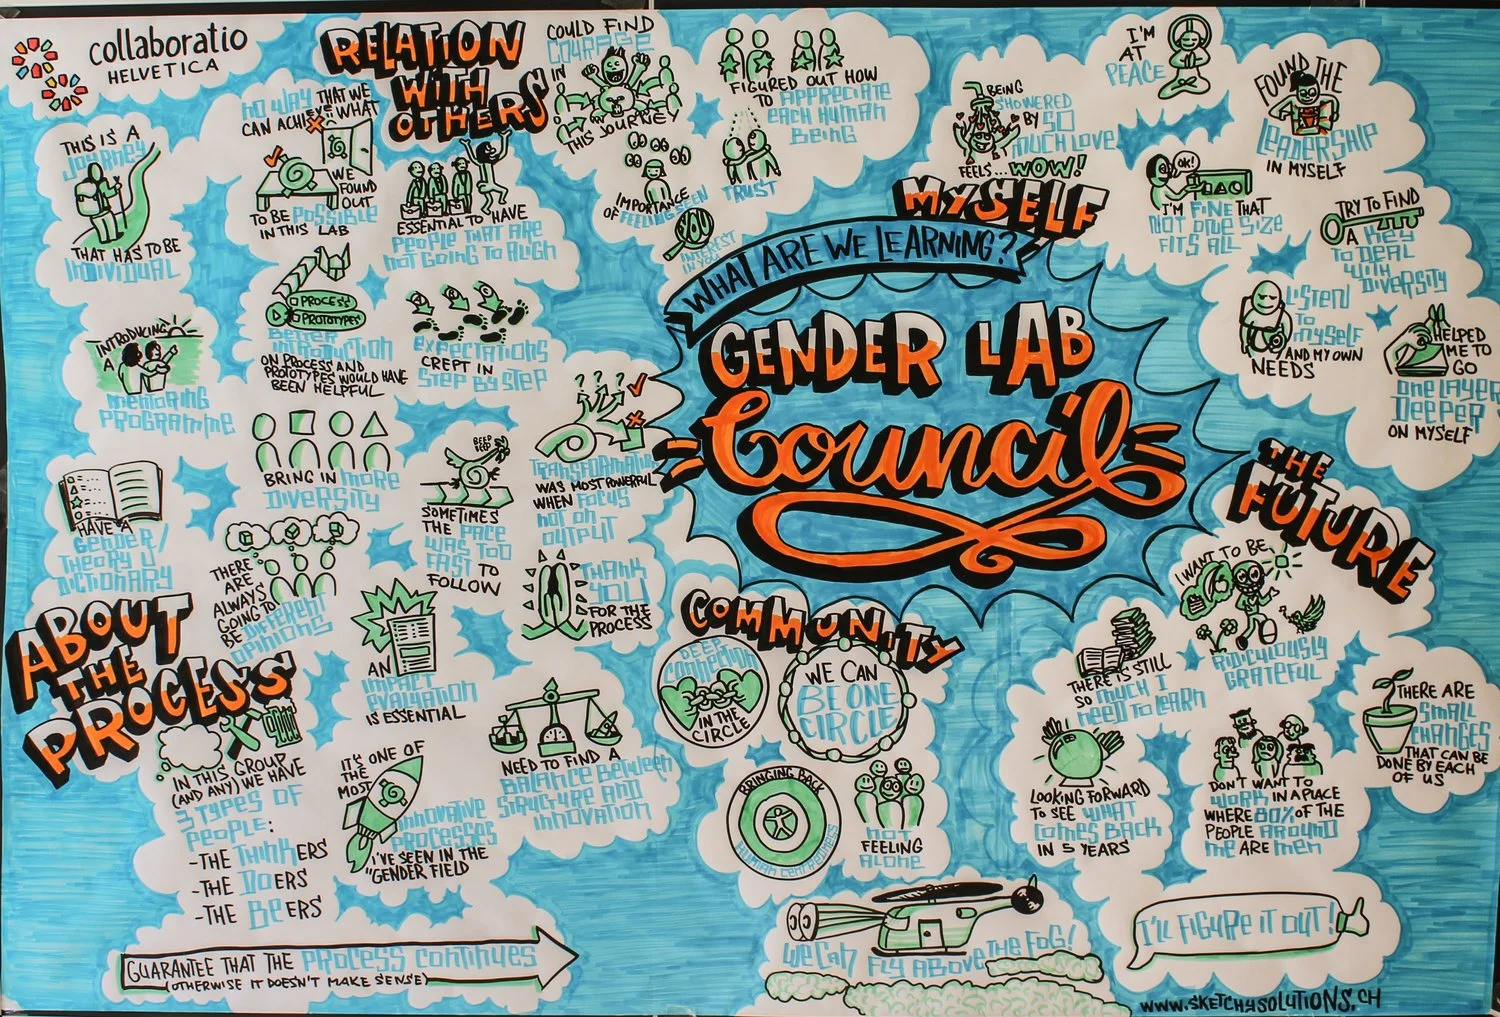 collaboratio
HELVETICA
RELATION
WITH
OTHERS
THIS IS A
JOURNEY
THAT HAS TO BE
INDIVIDUAL
NO WAY THAT WE
CAN ACHIEVE WHAT
WE
FOUND
OUT
TO BE POSSIBLE
IN THIS LAB
ESSENTIAL TO HAVE
PEOPLE THAT ARE
NOT GOING TO ALIGN
COULD FIND
COURAGE
IN
THIS JOURNEY
FIGURED OUT HOW
TO APPRECIATE
EACH HUMAN
BEING
IMPORTANCE
OF FEELING SEEN
TRUST
INTEREST
IN YOU
INTRODUCING
A
MENTORING
PROGRAMME
PROCESS
PROTOTYPES
BETTER
INTRODUCTION
ON PROCESS AND
PROTOTYPES WOULD HAVE
BEEN HELPFUL
A B C
EXPECTATIONS
CREPT IN
STEP BY STEP
BRING IN MORE
DIVERSITY
BEEP
BEEP
SOMETIMES
THE PACE
WAS TOO
FAST TO
FOLLOW
? ? ? ?
TRANSFORMATION
WAS MOST POWERFUL
WHEN FOCUS
NOT ON
OUTPUT
HAVE A
GENDER/
THEORY U
DICTIONARY
THERE
ARE
ALWAYS
GOING TO
BE DIFFERENT
OPINIONS
AN
IMPACT
EVALUATION
IS ESSENTIAL
THANK
YOU
FOR THE
PROCESS
ABOUT
THE
PROCESS
IN THIS GROUP
(AND ANY) WE HAVE
3 TYPES OF
PEOPLE:
-THE THINKERS
-THE DOERS
-THE BEERS
IT'S ONE OF
THE
MOST
INNOVATIVE
PROCESSES
I'VE SEEN IN THE
"GENDER FIELD
NEED TO FIND A
BALANCE BETWEEN
STRUCTURE AND
INNOVATION
GUARANTEE THAT THE PROCESS CONTINUES
(OTHERWISE IT DOESN'T MAKE SENSE)
WHAT ARE WE LEARNING?
GENDER LAB
Council
MYSELF
BEING
SHOWERED
BY SO
MUCH LOVE
FEELS... WOW!
I'M
AT
PEACE
FOUND THE
LEADERSHIP
IN MYSELF
OK!
I'M FINE THAT
NOT ONE SIZE
FITS ALL
TRY TO FIND
A KEY
TO DEAL
WITH
DIVERSITY
LISTEN
TO
MYSELF
AND MY OWN
NEEDS
HELPED
ME TO
GO
ONE LAYER
DEEPER
ON MYSELF
COMMUNITY
DEEP
CONNECTION
IN THE
CIRCLE
WE CAN
BE ONE
CIRCLE
BRINGING BACK
HUMAN CENTREDNESS
NOT
FEELING
ALONE
WE CAN FLY ABOVE THE FOG!
THE
FUTURE
I WANT TO BE
RIDICULOUSLY
GRATEFUL
THERE IS STILL
SO MUCH I
NEED TO LEARN
LOOKING FORWARD
TO SEE WHAT
COMES BACK
IN 5 YEARS
DON'T WANT TO
WORK IN A PLACE
WHERE 80% OF THE
PEOPLE AROUND
ME ARE MEN
THERE ARE
SMALL
CHANGES
THAT CAN BE
DONE BY EACH
OF US
I'LL FIGURE IT OUT!
WWW.SKETCHYSOLUTIONS.CH